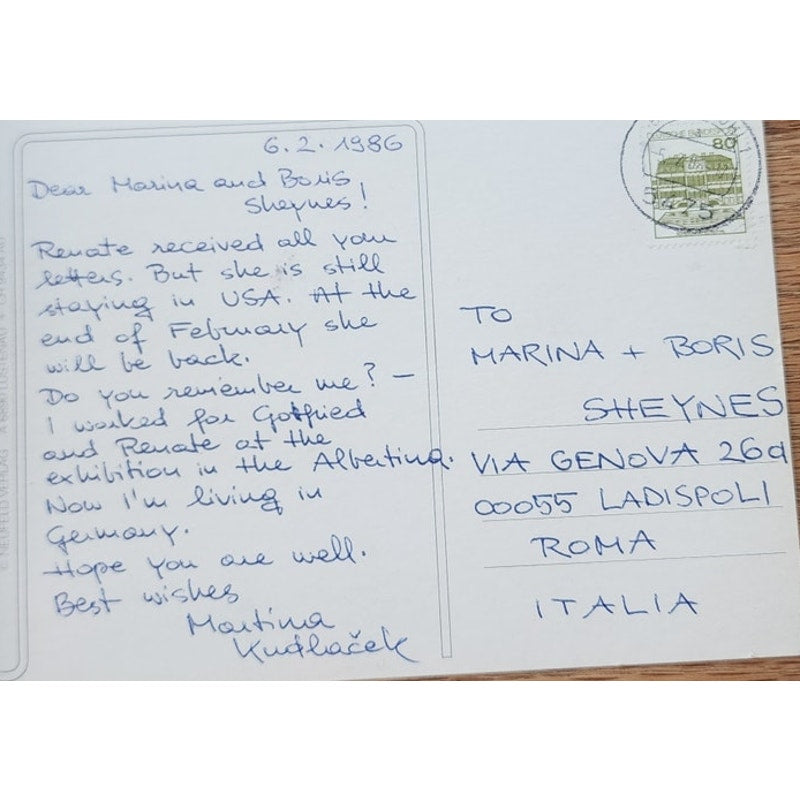 6.2.1986
Dear Marina and Boris
Sheynes!
Renate received all your
letters. But she is still
staying in USA. At the
end of February she
will be back.
Do you remember me? —
I worked for Gotfried
and Renate at the
exhibition in the Albertina.
Now I'm living in
Germany.
Hope you are well.
Best wishes
Martina
Kudlaček
80
5475
TO
MARINA + BORIS
SHEYNES
VIA GENOVA 26a
00055 LADISPOLI
ROMA
ITALIA
© NEUFELD VERLAG